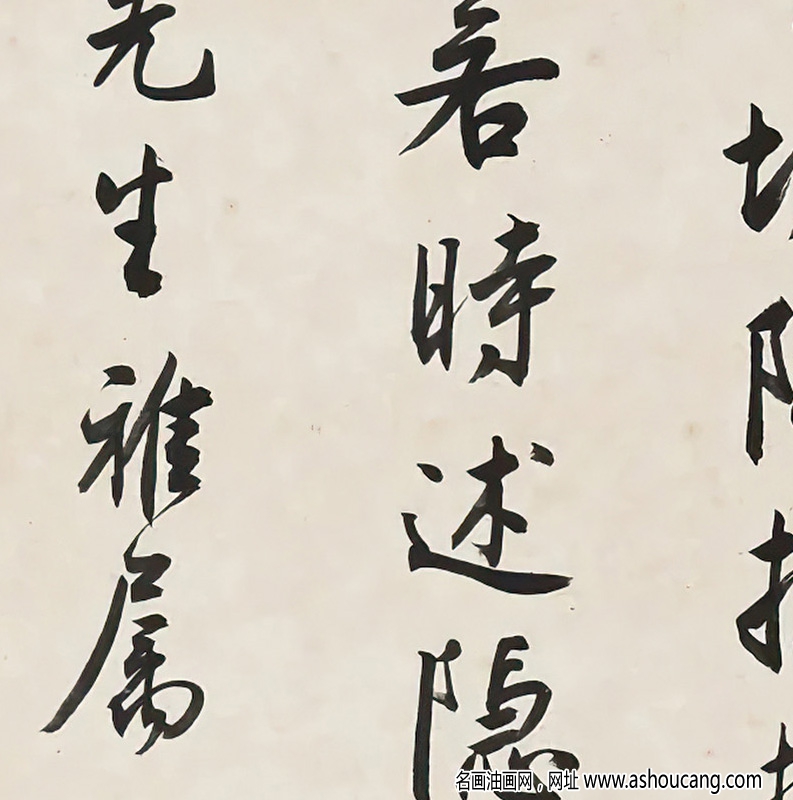 若時述隐
先生雅属
名画油画网，网址 www.ashoucang.com